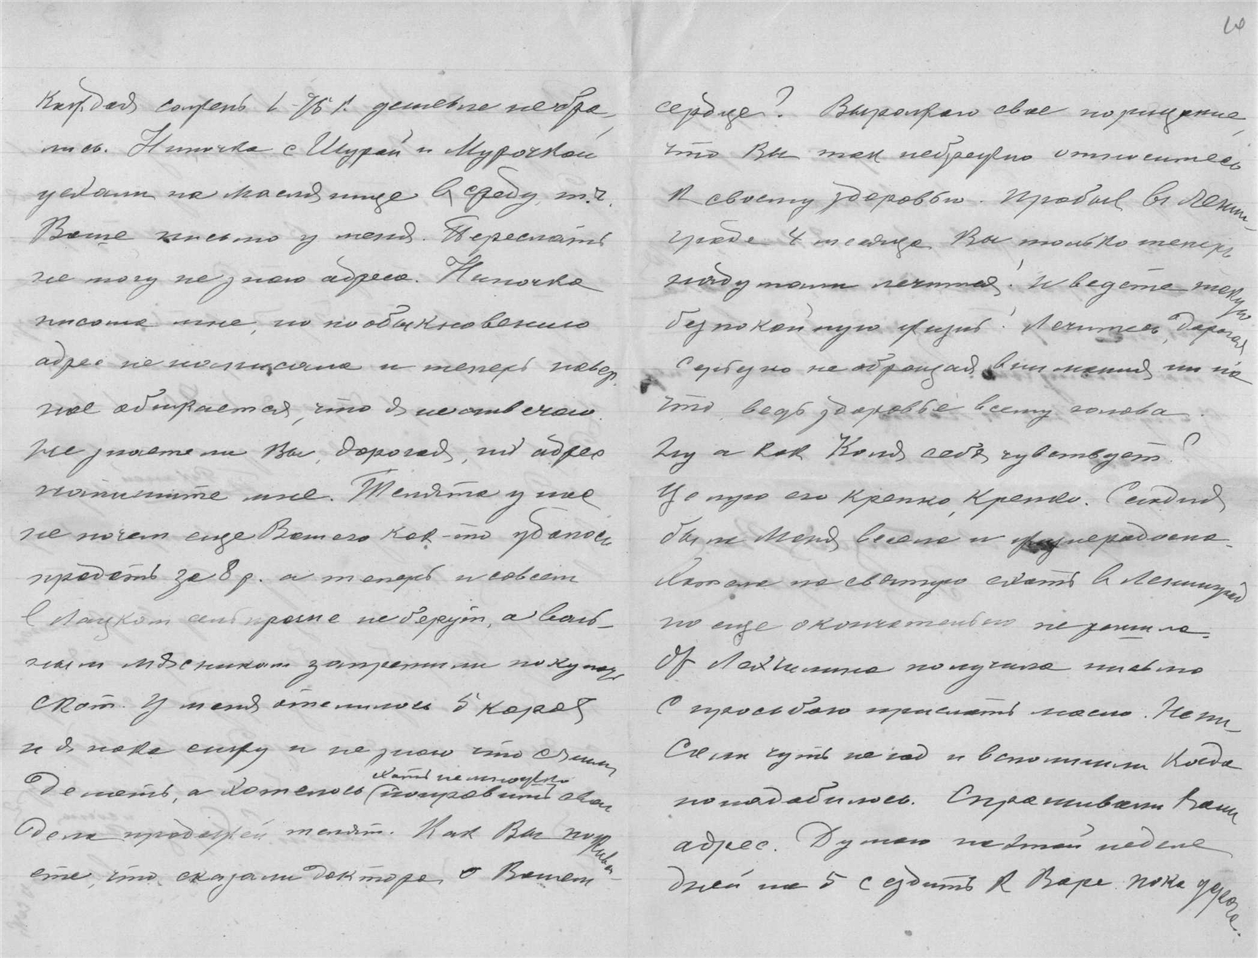 каждая сажень 1-75 к. дешевле не обра-
лись. Ниночка с Шурой и Мурочкой
уехали на маслянице в среду, т.ч.
Ваше письмо у меня. Переслать
не могу не знаю адреса. Ниночка
писала мне, но по обыкновению
адрес не написала и теперь навер.
ное обижается, что я не отвечаю.
Не знаете ли Вы, дорогая, их адрес
напишите мне. Телята у нас
не почем еще Вашего как-то удалось
продать за 8 р. а теперь и совсем
в не берут, а воль-
ным мясникам запретили покупать
скот. У меня отелилось 5 коров
и я пока сижу и не знаю что с ними
делать, а хотелось (хоть немножко поправить) свои
дела продажей телят. Как Вы пожива-
ете, что сказали доктора о Вашем
10
сердце? Выражаю свое порицание,
что Вы так небрежно относитесь
к своему здоровью. Пробыв в Ленин-
граде 4 месяца Вы только теперь
надумали лечится! И ведете такую
безпокойную жизнь! Лечитесь, дорогая,
серьезно не обращая внимания ни на
что, ведь здоровье всему голова.
Ну а как Коля себя чувствует?
Целую его крепко, крепко.
была Маня весела и жизнерадостна.
Хотела на святую ехать в Ленинград
но еще окончательно не решила.
От получила письмо
с просьбою прислать масло. Не пи-
сали чуть не год и вспомнили когда
понадобилось. Спрашивали Ваш
адрес. Думаю на этой неделе
дней на 5 съездить к Варе пока дороге.